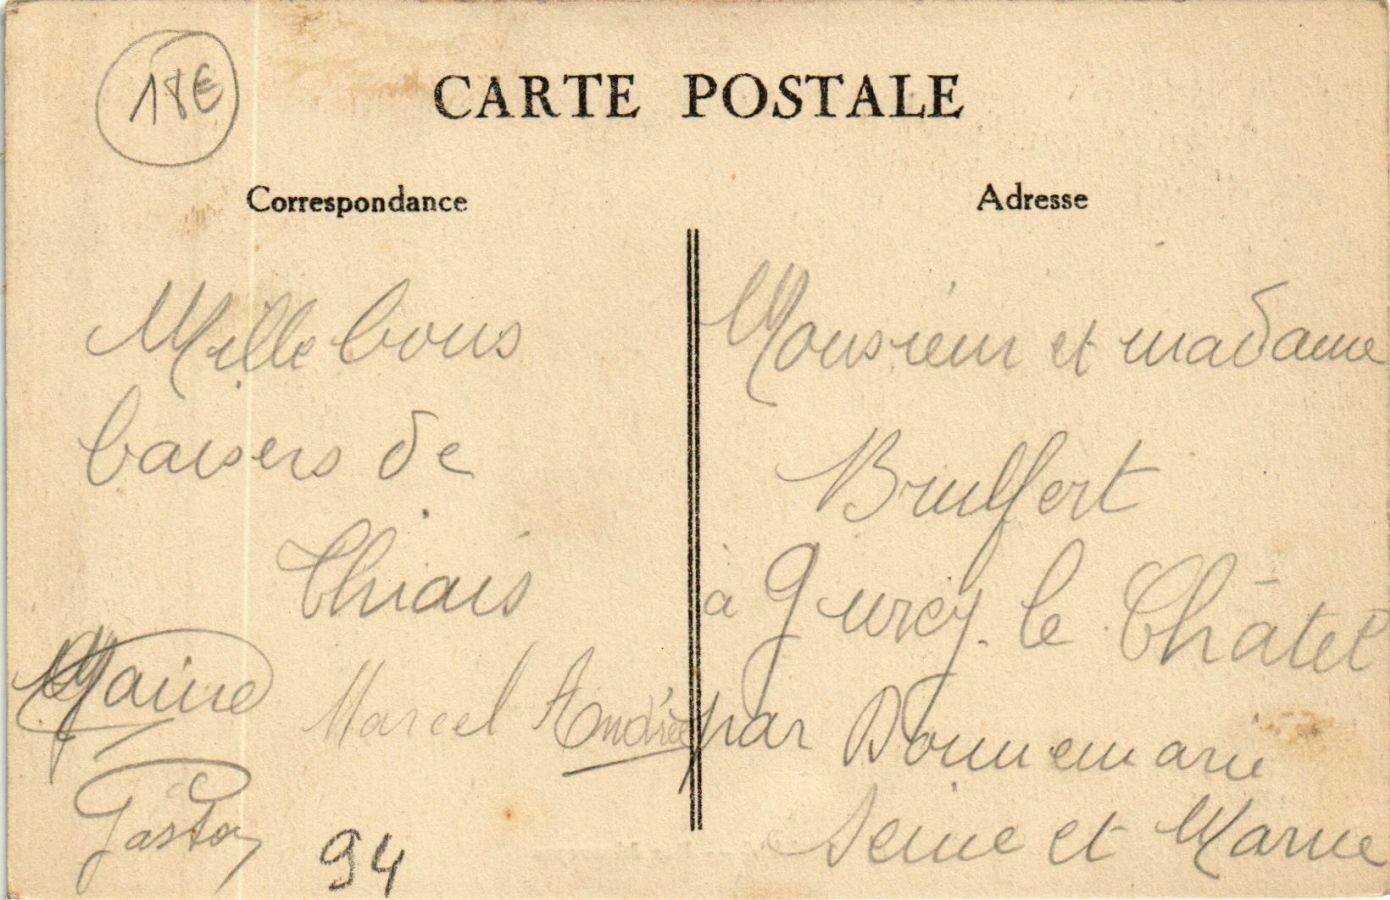 18€
CARTE POSTALE
Correspondance
Mille bons
baisers de
Thiais
Marcel Andrée
Gaston
94
Adresse
Monsieur et madame
Brulfert
à Gurcy le Châtel
par Donnemarie
Seine et Marne